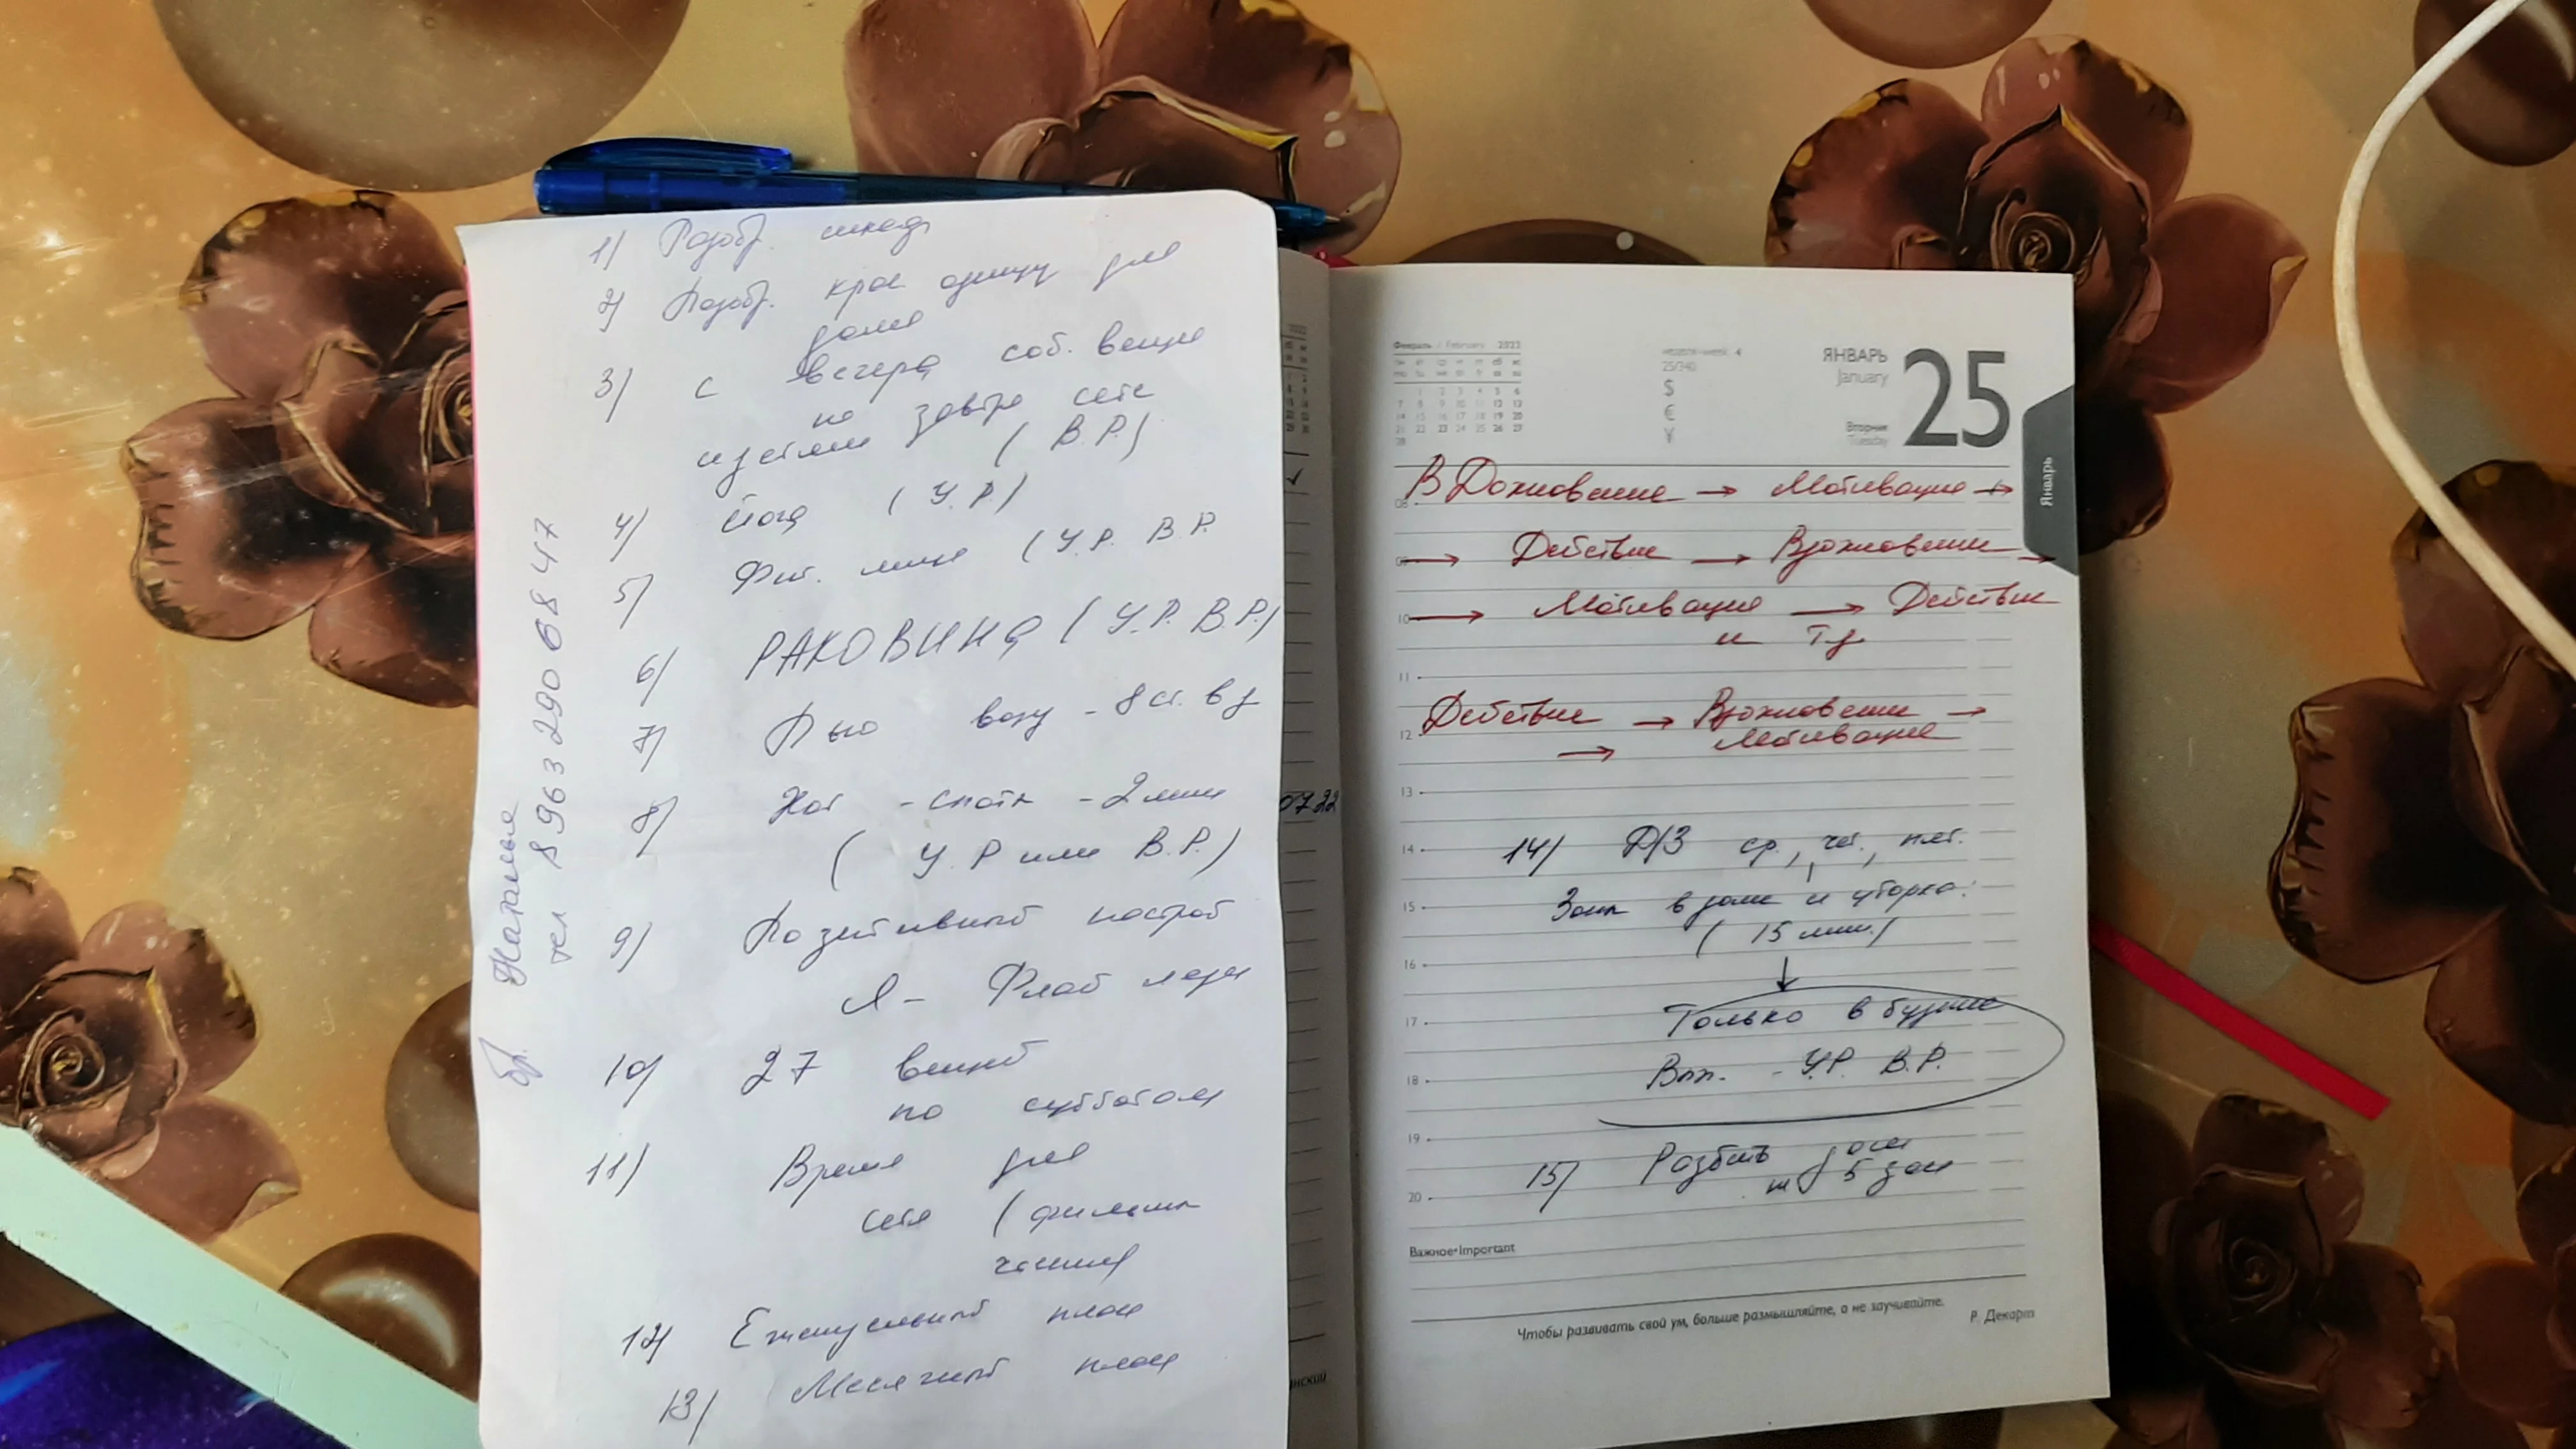 1) Разобр. шкаф
2) Подобр. крас одежду для
дома
3) с вечера соб. вещи
на завтра себе
и детям (В.Р.)
4) Йога (У.Р)
5) Фит. лица (У.Р. В.Р.
6) РАКОВИНА (У.Р. В.Р.)
7) Пью воду - 8 ст. в д
8) Хот - споты - 2 мин
(У.Р или В.Р.)
9) Позитивный настрой
Я - Флай леди
10) 27 вещей
по субботам
11) Время для
себя (фильмы
чтение)
12) Еженедельный план
13) Месячный план
Наталья
тел 8 963 290 68 47
07.22
нский
Февраль / February 2022
неделя-week 4
25/340
$
€
¥
ЯНВАРЬ
January
25
Вторник
Tuesday
Январь
ВДохновение → Мотивация →
08
09 → Действие → Вдохновение →
10 → Мотивация → Действие
и т д
11
Действие → Вдохновение →
12 → Мотивация
13
14 14) Д/З ср., чет., пят.
15 Зоны в доме и уборка.
(15 мин.)
16
17 Только в будние
18 Вып. - У.Р. В.Р.
19
15) Разбить дом
20 на 5 зон
Важное•Important
Чтобы развивать свой ум, больше размышляйте, а не заучивайте.
Р. Декарт